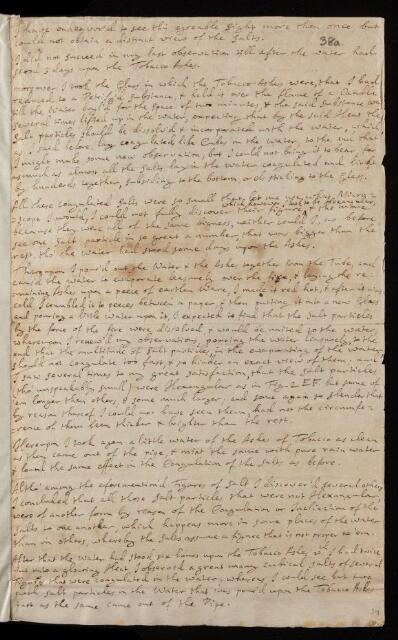 I have endeavor'd to see this agreeable sight more then once but
could not obtain a distinct view of the Salts.
38a
I did not succeed in my last observation till after the water had
stood 3 days upon the Tobacco Ashes.
moreover I took the Glass in which the Tobacco Ashes were, that I had
reduced to a substance, & held it over the flame of a Candle
till the water boyl'd for the space of two minutes, & the said substance was
several times lifted up in the water, expecting that by the said Heat the
Salt particles should be dissolv'd & incorporated with the water, which
as I said before, lay coagulated like Cubes in the water, to the end that
I might make some new observation, but I could not bring it to bear, for
asmuch as almost all the Salts lay in the water coagulated
by hundreds together, subsiding to the bottom or sticking to the Glass.
All these coagulated Salts were so small that, let me use what Micro-
scope I would, I could not fully discover their figures,
because they were all of the same bigness, neither could I before
see one Salt particle in so great a number, that was bigger than the
rest, tho the water had stood some days upon the Ashes.
Thereupon I pour'd out the Water & the Ashes together from the Tube, and
caus'd the water to evaporate leisurely over the fire, & laying the re-
maining Ashes upon a peece of earthen Ware, I made it red hot, & after it was
cold, I crumbled it to peeces between a paper, & then putting it into a new Glass
and pouring a little water upon it, I expected to find that the Salt particles
by the force of the fire were dissolved, & would be united to the water,
whereupon I renew'd my observations, pouring the water leasurely, to the
end that the multitude of Salt particles, in the evaporating of the water,
should not coagulate too fast, & so hinder an exact view of them, and
I saw several times to my great satisfaction, that the Salt particles
tho unspeakably small, were Hexangular as in Fig. 2 EF. but some of
'em longer than others, & some much larger, and some again so slender that
by reason thereof I could not have seen them, had not the circumfe-
rence of them been thicker & brighter than the rest.
Hereupon I took again a little water of the Ashes of Tobacco as clean
as they came out of the pipe, & mixt the same with pure rain water
& found the same effect in the Coagulation of the Salts as before.
Altho' among the aforementioned Figures of Salt I discover'd several others,
I concluded that all those Salt particles that were not Hexangular,
were of another form by reason of the Coagulation or Inclination of the
Salts to one another, which happens more in some places of the water
than in others, whereby the Salts assume a figure that is not proper to 'em.
After that the Water had stood some hours upon the Tobacco Ashes, wch. I had twice
put into a glowing Heat, I observ'd a great many cubical Salts of several
figures that were coagulated in the water; whereas, I could see but two
such Salt particles in the Water that was pour'd upon the Tobacco Ashes
just as the same came out of the Pipe.